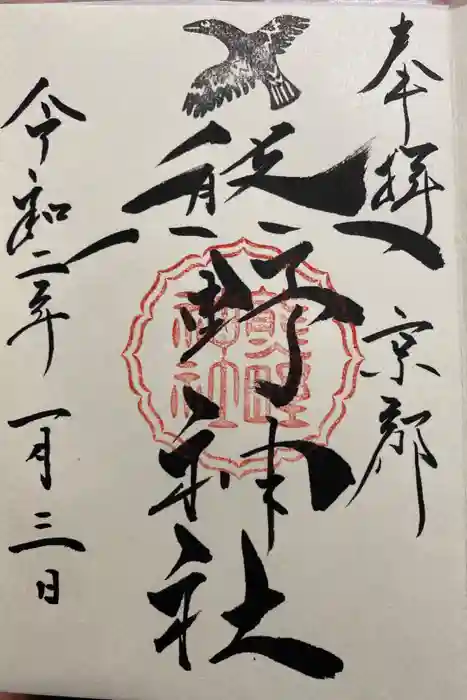 奉拝 京都
熊野神社
熊野
神社
令和二年一月三日